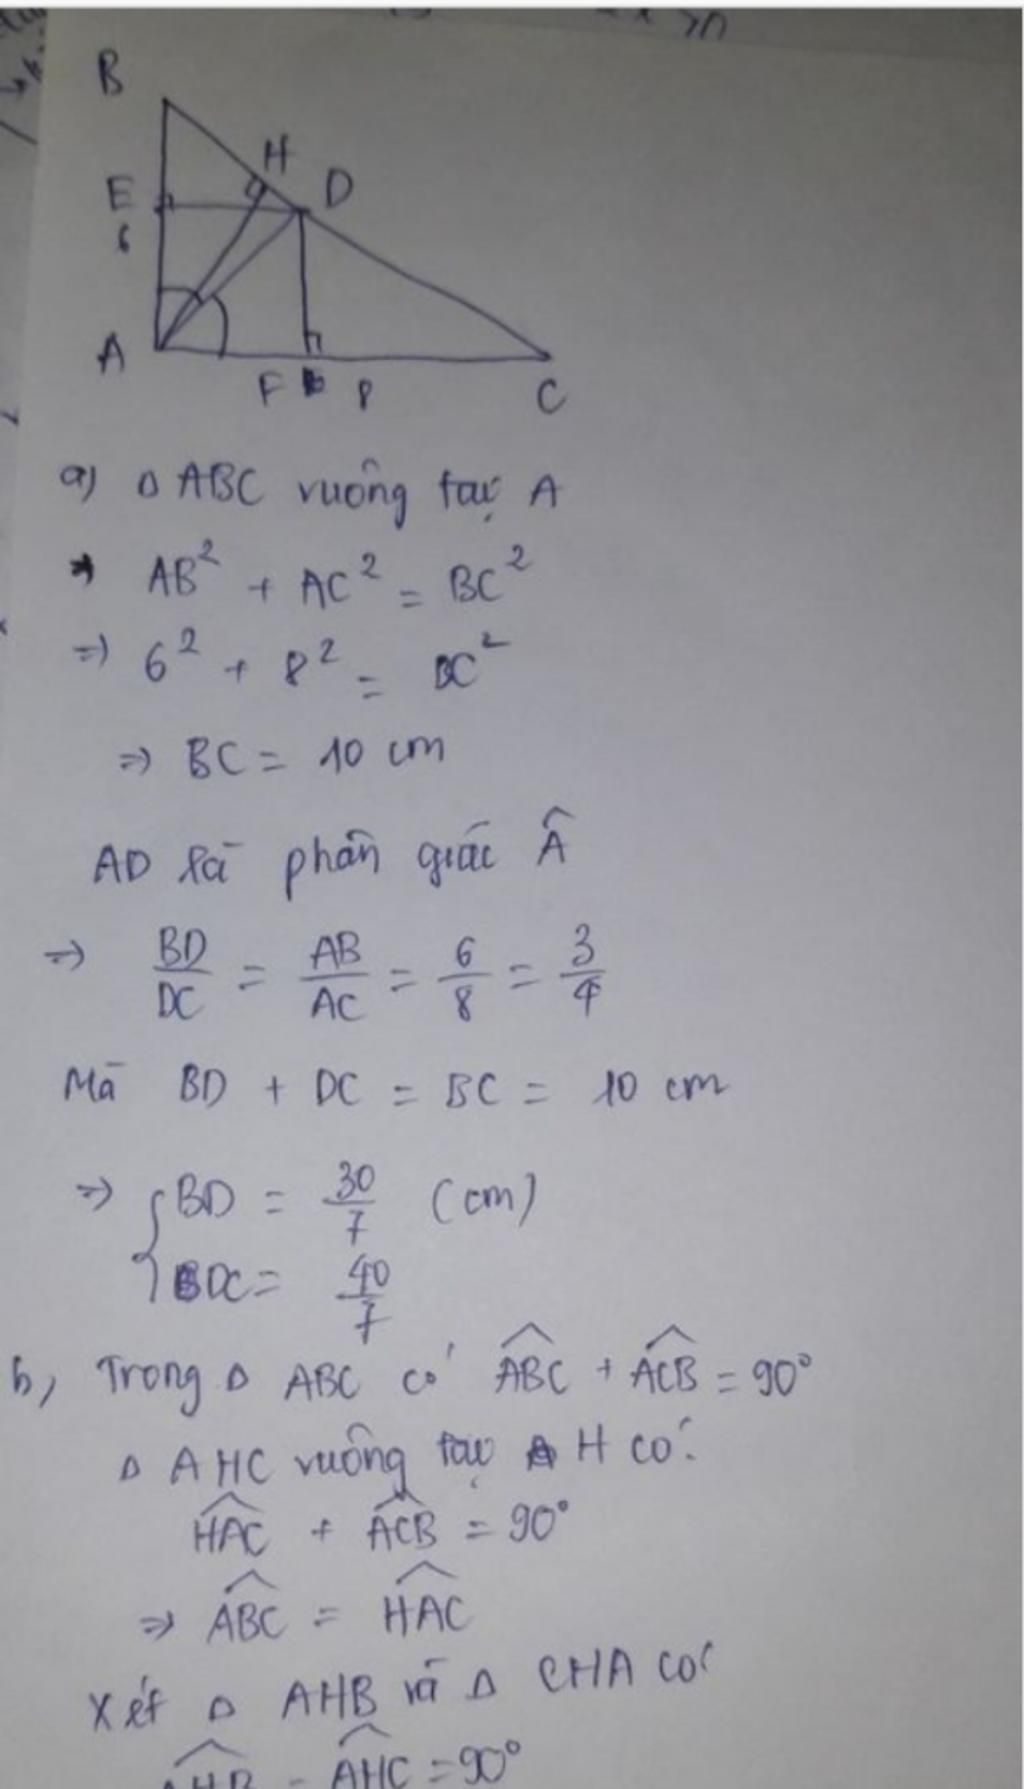 B
H
E
D
6
A
F
8
C
a) Δ ABC vuông tại A
AB² + AC² = BC²
=> 6² + 8² = BC²
=> BC = 10 cm
AD là phân giác Â
=> BD/DC = AB/AC = 6/8 = 3/4
Mà BD + DC = BC = 10 cm
=> { BD = 30/7 (cm)
DC = 40/7
b, Trong Δ ABC có \widehat{ABC} + \widehat{ACB} = 90°
Δ AHC vuông tại H có:
\widehat{HAC} + \widehat{ACB} = 90°
=> \widehat{ABC} = \widehat{HAC}
Xét Δ AHB và Δ CHA có
\widehat{AHB} = \widehat{AHC} = 90°